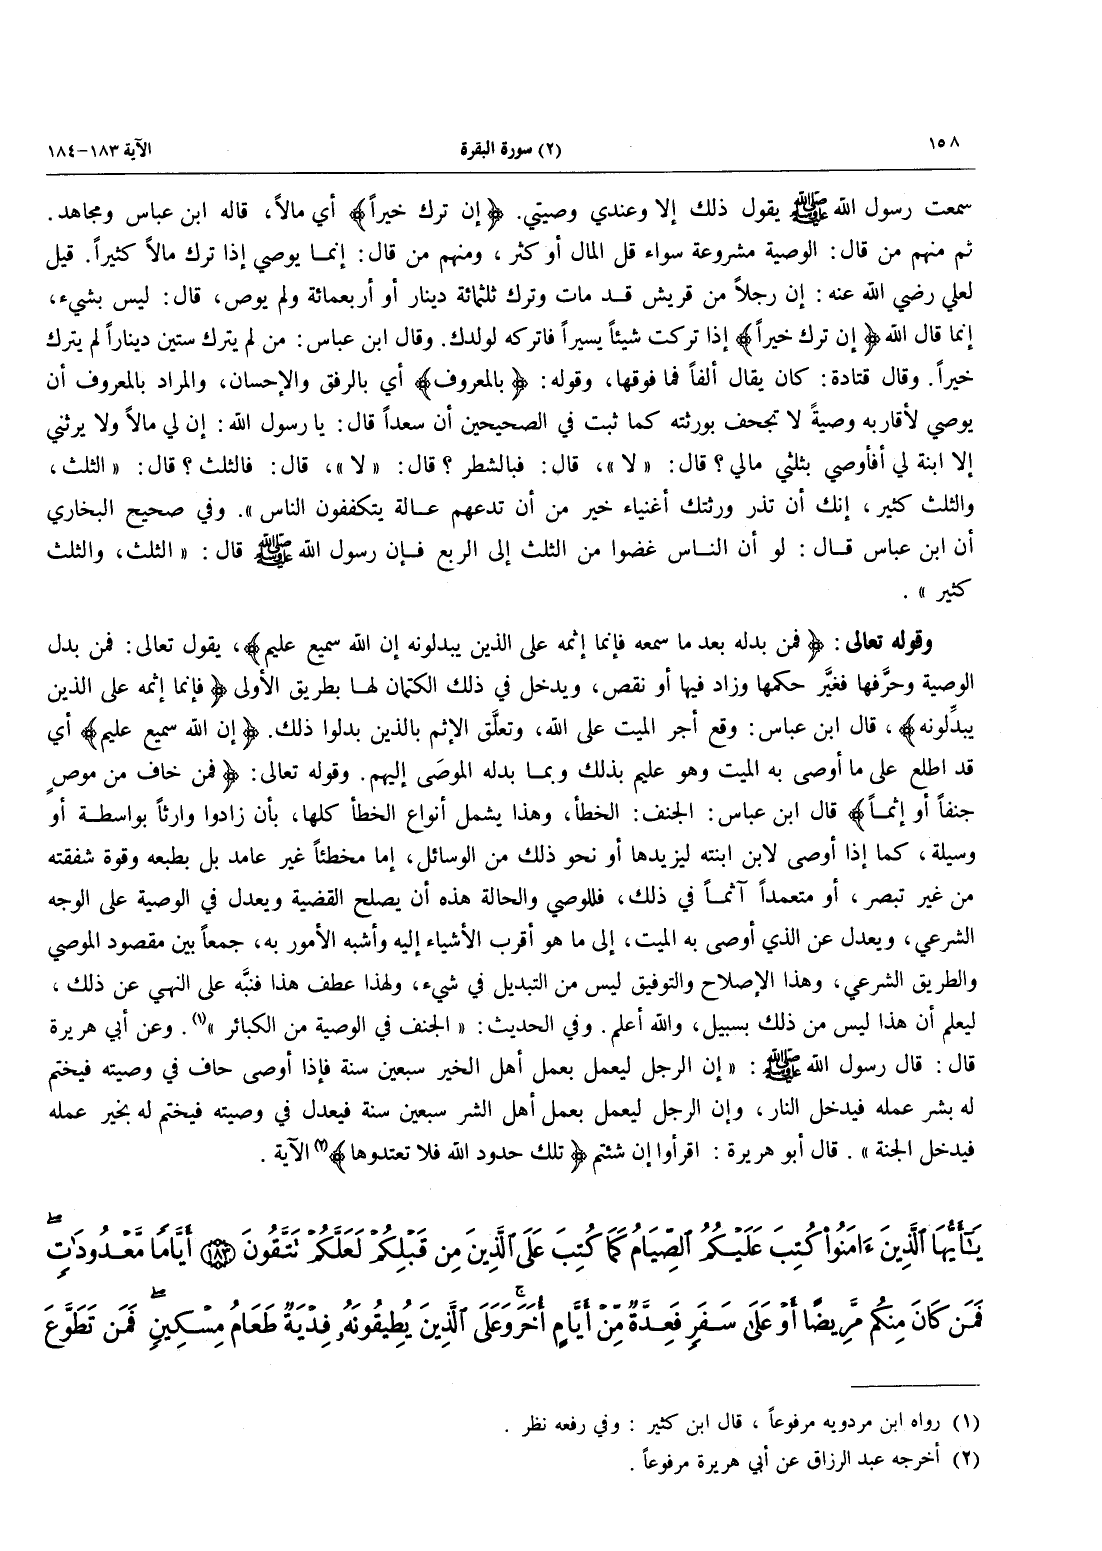 ١٥٨ (٢) سورة البقرة الآية ١٨٣-١٨٤
سمعت رسول الله ﷺ يقول ذلك إلا وعندي وصيتي. ﴿إن ترك خيراً﴾ أي مالاً، قاله ابن عباس ومجاهد.
ثم منهم من قال: الوصية مشروعة سواء قل المال أو كثر، ومنهم من قال: إنمـا يوصي إذا ترك مالاً كثيراً. قيل
لعلي رضي الله عنه: إن رجلاً من قريش قـد مات وترك ثلثمائة دينار أو أربعمائة ولم يوص، قال: ليس بشيء،
إنما قال الله ﴿إن ترك خيراً﴾ إذا تركت شيئاً يسيراً فاتركه لولدك. وقال ابن عباس: من لم يترك ستين ديناراً لم يترك
خيراً. وقال قتادة: كان يقال ألفاً فما فوقها، وقوله: ﴿بالمعروف﴾ أي بالرفق والإحسان، والمراد بالمعروف أن
يوصي لأقاربه وصيةً لا تجحف بورثته كما ثبت في الصحيحين أن سعداً قال: يا رسول الله: إن لي مالاً ولا يرثني
إلا ابنة لي أفأوصي بثلثي مالي؟ قال: «لا»، قال: فبالشطر؟ قال: «لا»، قال: فالثلث؟ قال: «الثلث،
والثلث كثير، إنك أن تذر ورثتك أغنياء خير من أن تدعهم عـالة يتكففون الناس». وفي صحيح البخاري
أن ابن عباس قـال: لو أن النـاس غضوا من الثلث إلى الربع فـإن رسول الله ﷺ قال: «الثلث، والثلث
كثير».
وقوله تعالى: ﴿فمن بدله بعد ما سمعه فإنما إثمه على الذين يبدلونه إن الله سميع عليم﴾، يقول تعالى: فمن بدل
الوصية وحرَّفها فغيَّر حكمها وزاد فيها أو نقص، ويدخل في ذلك الكتمان لهـا بطريق الأولى ﴿فإنما إثمه على الذين
يبدِّلونه﴾، قال ابن عباس: وقع أجر الميت على الله، وتعلَّق الإثم بالذين بدلوا ذلك. ﴿إن الله سميع عليم﴾ أي
قد اطلع على ما أوصى به الميت وهو عليم بذلك وبمـا بدله الموصَى إليهم. وقوله تعالى: ﴿فمن خاف من موصٍ
جنفاً أو إثمـاً﴾ قال ابن عباس: الجنف: الخطأ، وهذا يشمل أنواع الخطأ كلها، بأن زادوا وارثاً بواسطـة أو
وسيلة، كما إذا أوصى لابن ابنته ليزيدها أو نحو ذلك من الوسائل، إما مخطئاً غير عامد بل بطبعه وقوة شفقته
من غير تبصر، أو متعمداً آثمـاً في ذلك، فللوصي والحالة هذه أن يصلح القضية ويعدل في الوصية على الوجه
الشرعي، ويعدل عن الذي أوصى به الميت، إلى ما هو أقرب الأشياء إليه وأشبه الأمور به، جمعاً بين مقصود الموصي
والطريق الشرعي، وهذا الإصلاح والتوفيق ليس من التبديل في شيء، ولهذا عطف هذا فنبَّه على النهي عن ذلك،
ليعلم أن هذا ليس من ذلك بسبيل، والله أعلم. وفي الحديث: «الجنف في الوصية من الكبائر»(١). وعن أبي هريرة
قال: قال رسول الله ﷺ: «إن الرجل ليعمل بعمل أهل الخير سبعين سنة فإذا أوصى حاف في وصيته فيختم
له بشر عمله فيدخل النار، وإن الرجل ليعمل بعمل أهل الشر سبعين سنة فيعدل في وصيته فيختم له بخير عمله
فيدخل الجنة». قال أبو هريرة: اقرأوا إن شئتم ﴿تلك حدود الله فلا تعتدوها﴾(٢) الآية.
يَـٰٓأَيُّهَا ٱلَّذِينَ ءَامَنُوا۟ كُتِبَ عَلَيْكُمُ ٱلصِّيَامُ كَمَا كُتِبَ عَلَى ٱلَّذِينَ مِن قَبْلِكُمْ لَعَلَّكُمْ تَتَّقُونَ ﴿١٨٣﴾ أَيَّامًا مَّعْدُودَٰتٍۖ
فَمَن كَانَ مِنكُم مَّرِيضًا أَوْ عَلَىٰ سَفَرٍ فَعِدَّةٌ مِّنْ أَيَّامٍ أُخَرَۚ وَعَلَى ٱلَّذِينَ يُطِيقُونَهُۥ فِدْيَةٌ طَعَامُ مِسْكِينٍۖ فَمَن تَطَوَّعَ
(١) رواه ابن مردويه مرفوعاً، قال ابن كثير: وفي رفعه نظر.
(٢) أخرجه عبد الرزاق عن أبي هريرة مرفوعاً.